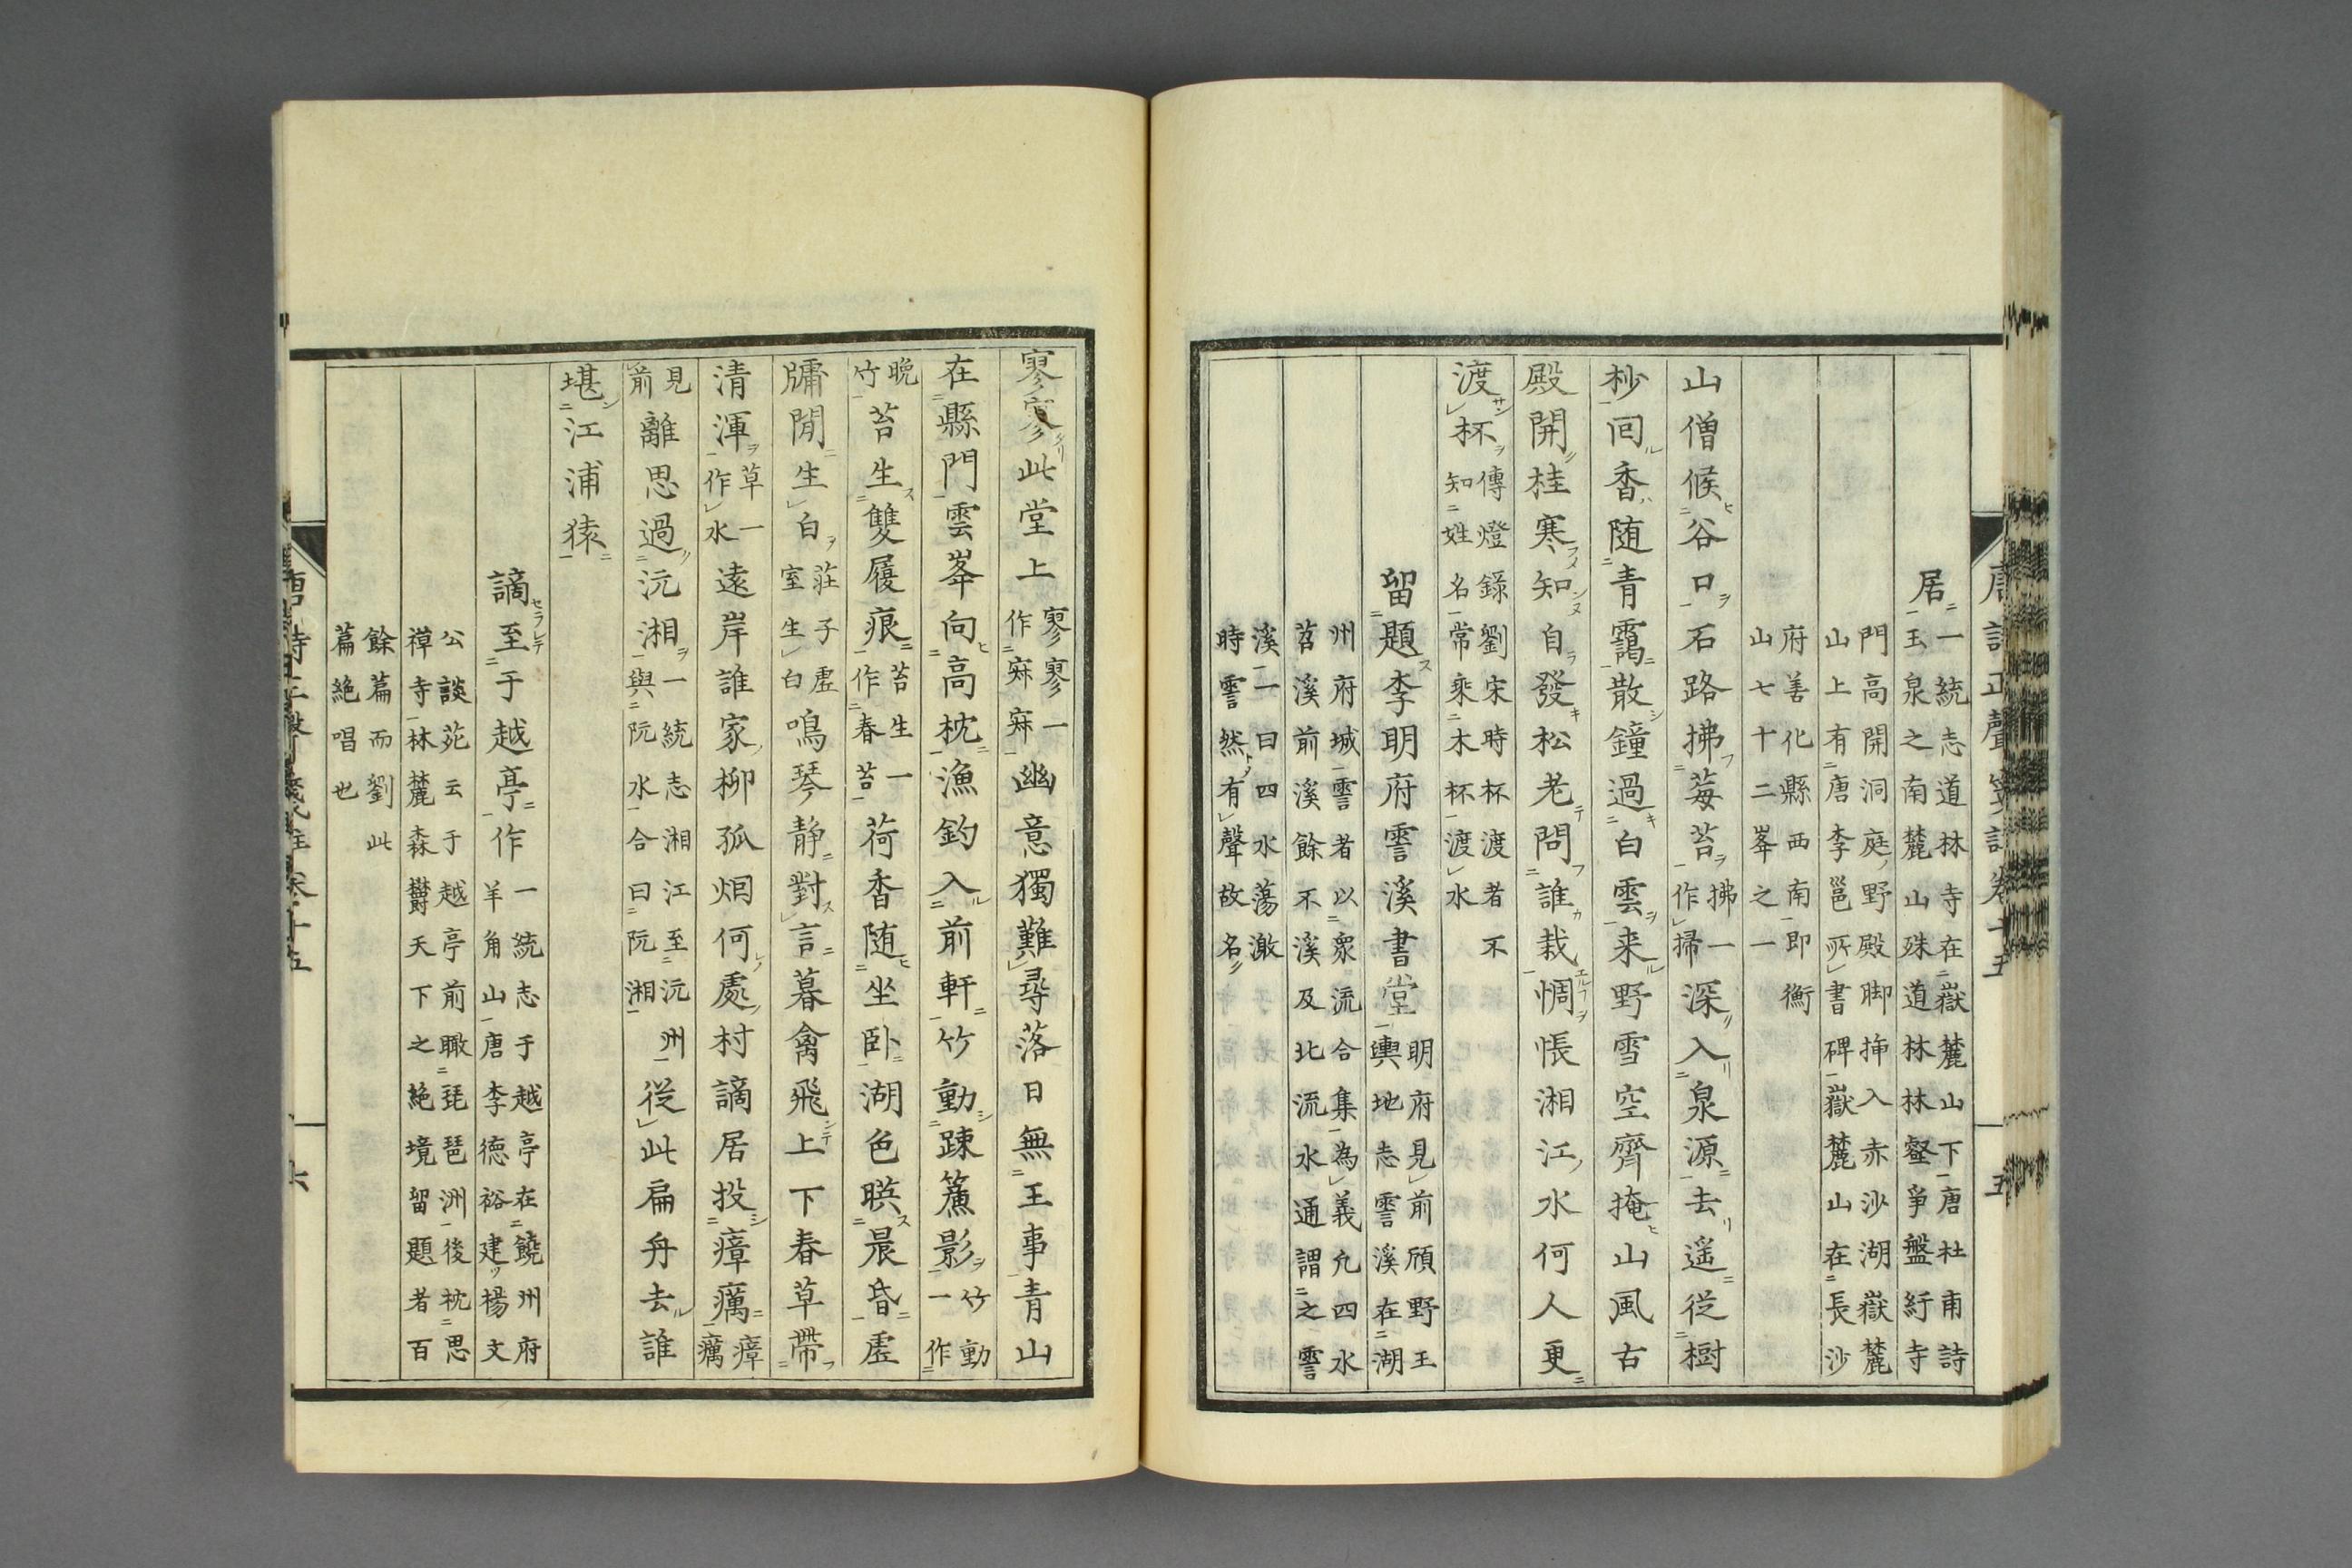 唐詩正聲箋註卷十五 五
居 一統志道林寺在嶽麓山下唐杜甫詩
玉泉之南麓山殊道林林壑爭盤紆寺
門高開洞庭野殿脚挿入赤沙湖嶽麓
山上有唐李邕所書碑嶽麓山在長沙
府善化縣西南即衡
山七十二峯之一
山僧候谷口石路拂莓苔拂一作掃深入泉源去遥從樹
杪回香随青靄散鐘過白雲来野雪空齊掩山風古
殿開桂寒知自發松老問誰栽惆悵湘江水何人更
渡杯 傳燈錄劉宋時杯渡者不
知姓名常乗木杯渡水
留題李明府霅溪書堂 明府見前頎野王
輿地志霅溪在湖
州府城霅者以衆流合集為義凢四水
苕溪前溪餘不溪及北流水通謂之霅
溪一曰四水蕩激
時霅然有聲故名
寥寥此堂上寥寥一作寂寂幽意獨難尋落日無王事青山
在縣門雲峯向高枕漁釣入前軒竹動疎簾影竹動一作
晩竹苔生雙履痕苔生一作春苔荷香随坐卧湖色暎晨昏虚
牖閒生白莊子虚室生白鳴琴静對言暮禽飛上下春草帶
清渾草一作水遠岸誰家柳孤烟何處村謫居投瘴癘瘴癘
見前離思過沅湘一統志湘江至沅州與阮水合曰阮湘從此扁舟去誰
堪江浦猿
謫至于越亭作 一統志于越亭在饒州府
羊角山唐李德裕建楊文
公談苑云于越亭前瞰琵琶洲後枕思
禅寺林麓森欝天下之絶境留題者百
餘篇而劉此
篇絶唱也